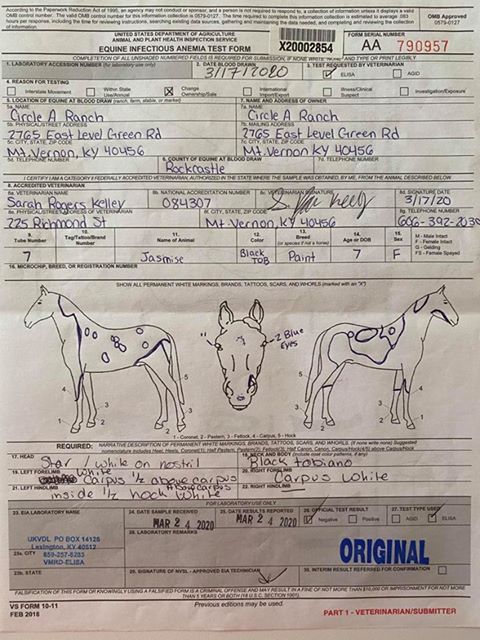 According to the Paperwork Reduction Act of 1995, an agency may not conduct or sponsor, and a person is not required to respond to, a collection of information unless it displays a valid
OMB control number. The valid OMB control number for this information collection is 0579-0127. The time required to complete this information collection is estimated to average .083
hours per response, including the time for reviewing instructions, searching existing data sources, gathering and maintaining the data needed, and completing and reviewing the collection
of information.
OMB Approved
0579-0127
UNITED STATES DEPARTMENT OF AGRICULTURE
ANIMAL AND PLANT HEALTH INSPECTION SERVICE
EQUINE INFECTIOUS ANEMIA TEST FORM
X20002854
FORM SERIAL NUMBER
AA 790957
1. LABORATORY ACCESSION NUMBER (for laboratory use only)
2. DATE BLOOD DRAWN
3/17/2020
3. TEST REQUESTED BY VETERINARIAN
ELISA
AGID
4. REASON FOR TESTING
Interstate Movement
Within State Use/Annual
Change Ownership/Sale
International Import/Export
Illness/Clinical Suspect
Investigation/Exposure
5. LOCATION OF EQUINE AT BLOOD DRAW (ranch, farm, stable, or market)
7. NAME AND ADDRESS OF OWNER
5a. NAME
Circle A Ranch
7a. NAME
Circle A Ranch
5b. PHYSICAL/STREET ADDRESS
2765 East Level Green Rd
7b. MAILING ADDRESS
2765 East Level Green Rd
5c. CITY, STATE, ZIP CODE
Mt. Vernon, KY 40456
7c. CITY, STATE, ZIP CODE
Mt. Vernon, KY 40456
5d. TELEPHONE NUMBER
6. COUNTY OF EQUINE AT BLOOD DRAW
Rockcastle
7d. TELEPHONE NUMBER
I CERTIFY I AM A CATEGORY II FEDERALLY ACCREDITED VETERINARIAN, AUTHORIZED IN THE STATE WHERE THE SAMPLE WAS OBTAINED, BY ME, FROM THE ANIMAL DESCRIBED BELOW.
8. ACCREDITED VETERINARIAN
8a. VETERINARIAN NAME
Sarah Rogers Kelley
8b. NATIONAL ACCREDITATION NUMBER
084307
8c. VETERINARIAN SIGNATURE
8d. SIGNATURE DATE
3/17/20
8e. PHYSICAL/STREET ADDRESS OF VETERINARIAN
225 Richmond St
8f. CITY, STATE, ZIP CODE
Mt Vernon, KY 40456
8g. TELEPHONE NUMBER
9. Tube Number
10. Tag/Tattoo/Brand Number
11. Name of Animal
12. Color
13. Breed (or species if not a horse)
14. Age or DOB
15. Sex
M - Male Intact
F - Female Intact
G - Gelding
FS - Female Spayed
7
Jasmise
Black TOB
Paint
7
F
16. MICROCHIP, BREED, OR REGISTRATION NUMBER
SHOW ALL PERMANENT WHITE MARKINGS, BRANDS, TATTOOS, SCARS, AND WHORLS (marked with an "X")
2 Blue
Eyes
1 - Coronet, 2 - Pastern, 3 - Fetlock, 4 - Carpus, 5 - Hock
REQUIRED:
NARRATIVE DESCRIPTION OF PERMANENT WHITE MARKINGS, BRANDS, TATTOOS, SCARS, AND WHORLS.
17. HEAD
Star / white on nostril
18. NECK AND BODY
Black tobiano
19. LEFT FORELIMB
White
Carpus 1/2 above carpus
20. RIGHT FORELIMB
Carpus white
21. LEFT HINDLIMB
inside 1/2 hock white
22. RIGHT HINDLIMB
FOR LABORATORY USE ONLY
23. EIA LABORATORY NAME
UKVDL PO BOX 14125
Lexington, KY 40512
859-257-8283
VMRD-ELISA
23a. CITY
23b. STATE
24. DATE SAMPLE RECEIVED
MAR 24 2020
25. DATE RESULTS REPORTED
MAR 24 2020
26. OFFICIAL TEST RESULT
Negative
Positive
27. TEST TYPE USED
AGID
ELISA
28. LABORATORY REMARKS
ORIGINAL
29. SIGNATURE OF NVSL - APPROVED EIA TECHNICIAN
30. INTERIM RESULT REFERRED FOR CONFIRMATION
FALSIFICATION OF THIS FORM OR KNOWINGLY USING A FALSIFIED FORM IS A CRIMINAL OFFENSE AND MAY RESULT IN A FINE OF NOT MORE THAN $10,000 OR IMPRISONMENT FOR NOT
MORE THAN 5 YEARS OR BOTH (18 U.S.C. SECTION 1001).
VS FORM 10-11
FEB 2018
Previous editions may be used.
PART 1 - VETERINARIAN/SUBMITTER